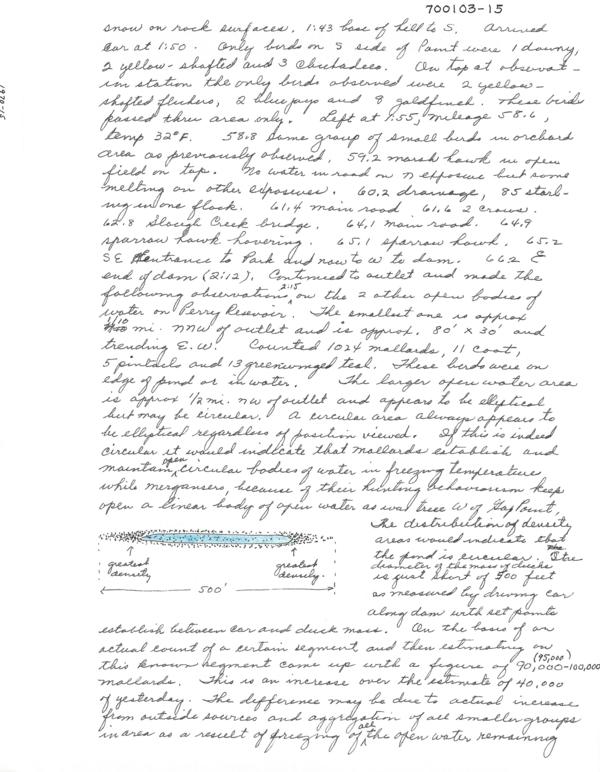 700103-15
snow on rock surfaces. 1:43 base of hill to S. Arrived
car at 1:50. Only birds on S side of Point were 1 downy,
2 yellow-shafted and 3 chickadees. On top at observat-
ion station the only birds observed were 2 yellow-
shafted flickers, 2 blue jays and 9 goldfinch. These birds
passed thru area only. Left at 1:55, mileage 58.6,
temp 32°F. 58.8 same group of small birds in orchard
area as previously observed. 59.2 marsh hawk in open
field on top. No water in road on N exposure but some
melting on other exposures. 60.2 drainage, 85 starl-
ing in one flock. 61.4 main road 61.6 2 crows.
62.8 Slough Creek bridge. 64.1 main road. 64.9
sparrow hawk hovering. 65.1 sparrow hawk. 65.2
SE entrance to Park and now to W to dam. 66.2 E
end of dam (2:12). Continued to outlet and made the
following observation 2:15 on the 2 other open bodies of
water on Perry Resevoir. The smallest one is approx
1/10 mi. NNW of outlet and is approx. 80' x 30' and
trending E.W. Counted 1024 mallards, 11 coot,
5 pintails and 13 greenwinged teal. These birds were on
edge of pond or in water. The larger open water area
is approx 1/2 mi. NW of outlet and appears to be elliptical
but may be circular. A circular area always appears to
be elliptical regardless of position viewed. If this is indeed
circular it would indicate that mallards establish and
maintain open circular bodies of water in freezing temperature
while mergansers, because of their hunting behaviorism keep
open a linear body of open water as was true W of Gap Point.
The distribution of density
areas would indicate that
the pond is circular. The
diameter of the mass of ducks
is just short of 500 feet
as measured by driving car
along dam with set points
greatest density
greatest density.
500'
establish between car and duck mass. On the basis of an
actual count of a certain segment and then estimating on
this known segment came up with a figure of 90,000-100,000 (95,000)
mallards. This is an increase over the estimate of 40,000
of yesterday. The difference may be due to actual increase
from outside sources and aggregation of all smaller groups
in area as a result of freezing of all the open water remaining